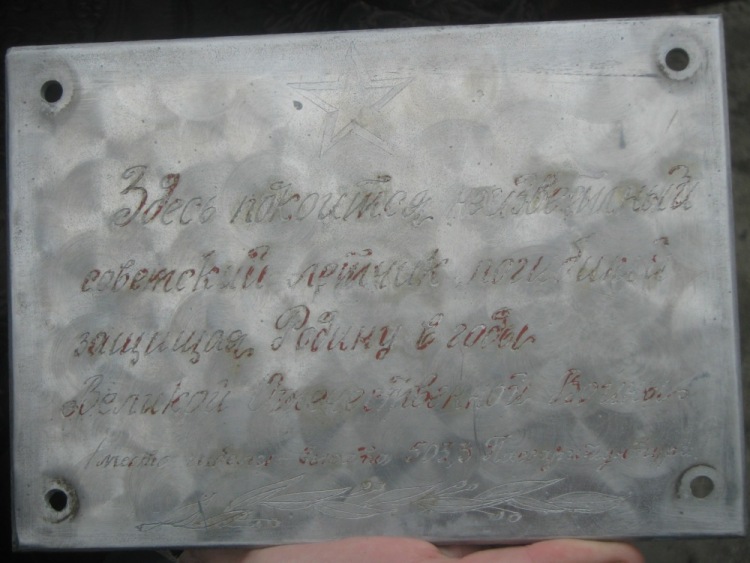 Здесь покоится неизвестный
советский летчик погибший
защищая Родину в годы
Великой Отечественной Войны